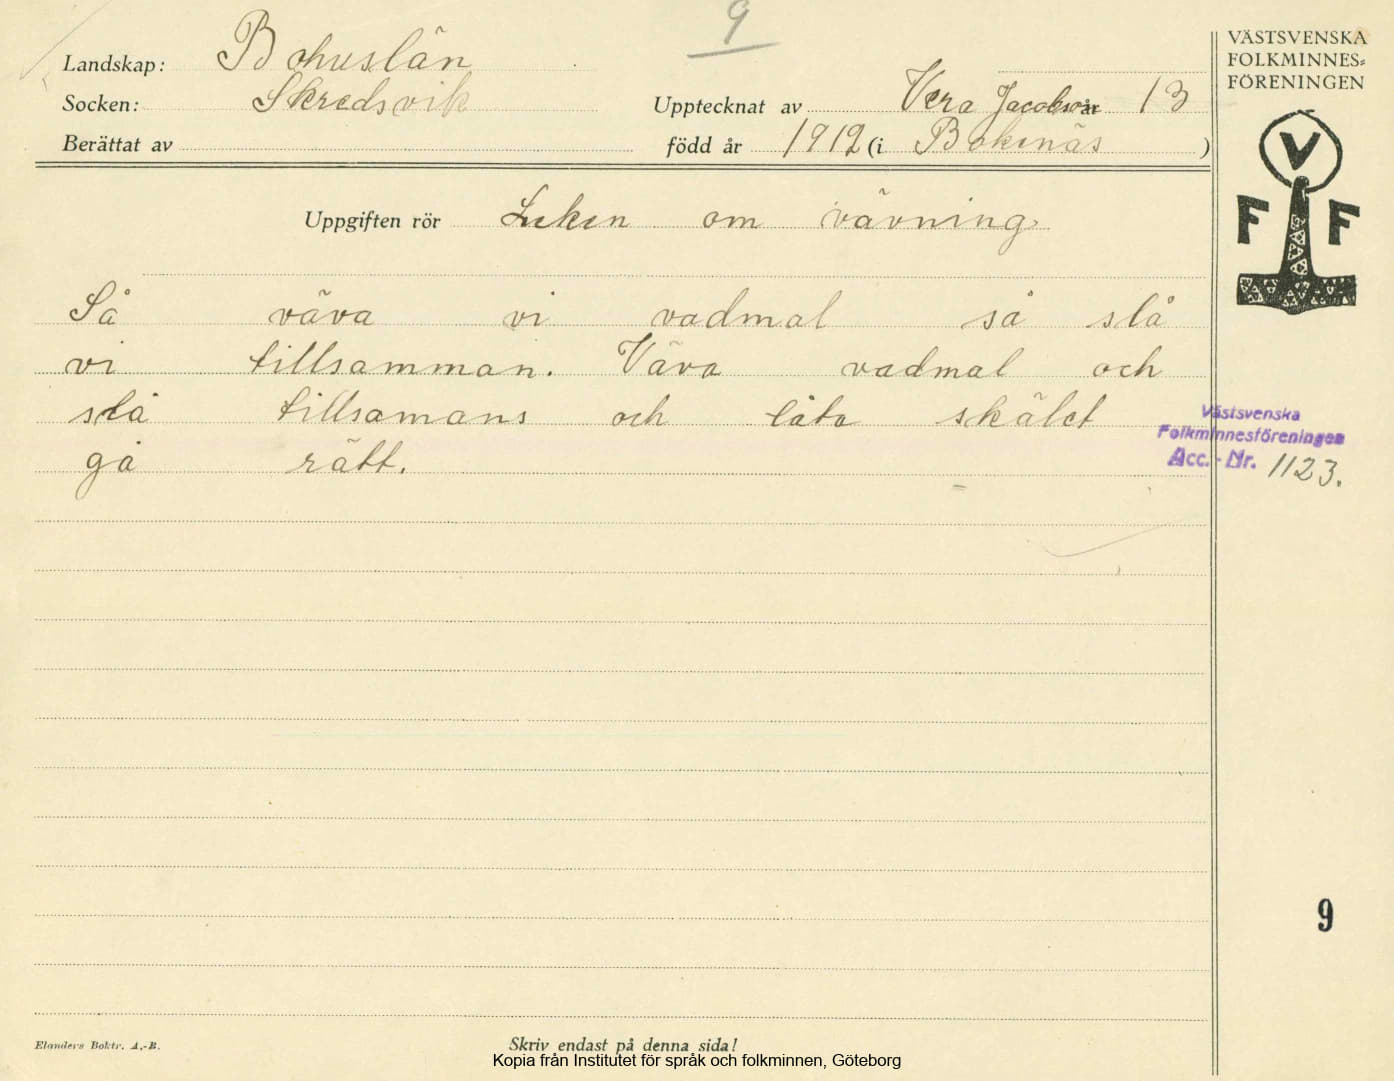 9
Landskap: Bohuslän
Socken: Skredsvik
Upptecknat av Vera Jacobson år 13
Berättat av
född år 1912 (i Bokenäs )
VÄSTSVENSKA
FOLKMINNES=
FÖRENINGEN
V
F F
Uppgiften rör Leken om vävning
Så väva vi vadmal så slå
vi tillsamman. Väva vadmal och
slå tillsamans och låta skälet
gå rätt.
Västsvenska
Folkminnesföreningen
Acc.-Nr. 1123.
9
Elanders Boktr. A.-B.
Skriv endast på denna sida!
Kopia från Institutet för språk och folkminnen, Göteborg